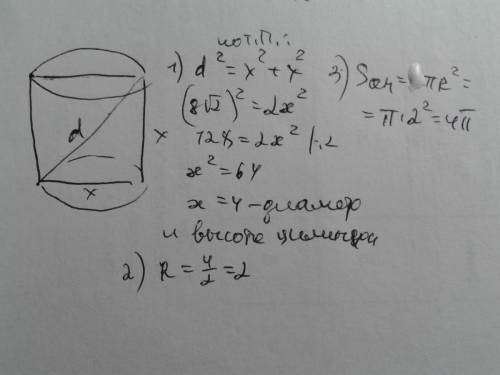 по т. П.:
1) d² = x² + x²
(8√2)² = 2x²
128 = 2x² /:2
x² = 64
x = 4 - диаметр
и высота цилиндра
2) R = 4/2 = 2
3) Sосн = πR² =
= π·2² = 4π
d
x
x